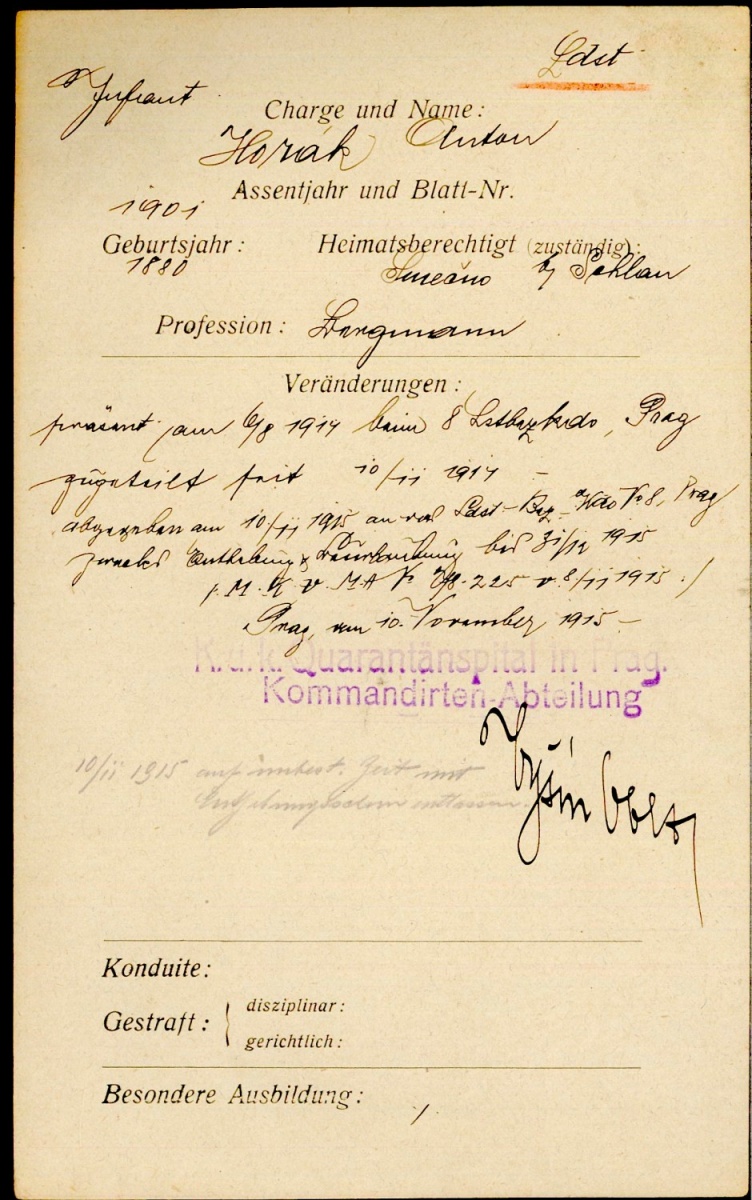 Ldst
Infrant
Charge und Name:
Horák Anton
Assentjahr und Blatt-Nr.
1901
Geburtsjahr: Heimatsberechtigt (zuständig):
1880 Smečno by Schlan
Profession: Bergmann
Veränderungen:
präsent am 6/8 1914 beim 8 Lstbezkdo, Prag
zugeteilt seit 10/11 1914 –
abgegeben am 10/11 1915 an das Ldst-Bez-Kdo No 8, Prag
zwecks Enthebung Beurlaubung bis 31/12 1915
/. M. K v. M.A No 225 v. 8/11 1915 ./
Prag, am 10. November 1915 –
K.u.k. Quarantänspital in Prag.
Kommandirten-Abteilung
10/11 1915 auf unbest. Zeit mit
Enthebungsschein entlassen.
Oblt
Konduite:
Gestraft: { disziplinar:
gerichtlich:
Besondere Ausbildung:
/